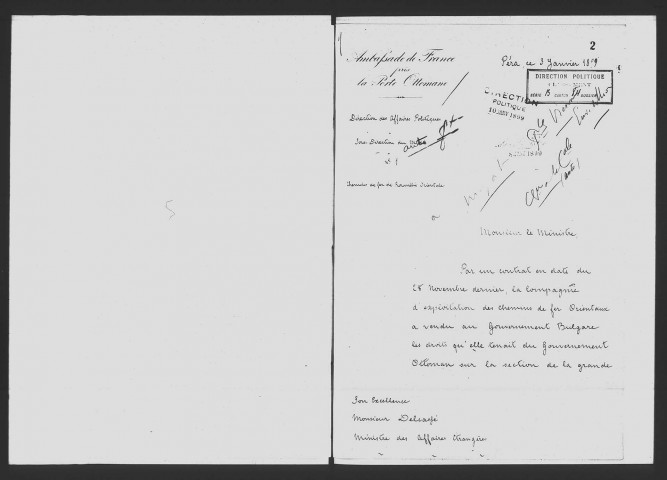 5
2
Ambassade de France
près
la Porte Ottomane
Péra, ce 3 Janvier 1899
DIRECTION POLITIQUE
DIRECTION
POLITIQUE
10 JANV 1899
Direction des Affaires Politiques
Sous Direction du
N° 1
Chemins de fer de Roumélie Orientale
Monsieur le Ministre,
Par un contrat en date du
28 Novembre dernier, la Compagnie
d'exploitation des chemins de fer Orientaux
a vendu au Gouvernement Bulgare
les droits qu'elle tenait du Gouvernement
Ottoman sur la section de la grande
Son Excellence
Monsieur Delcassé
Ministre des Affaires Etrangères